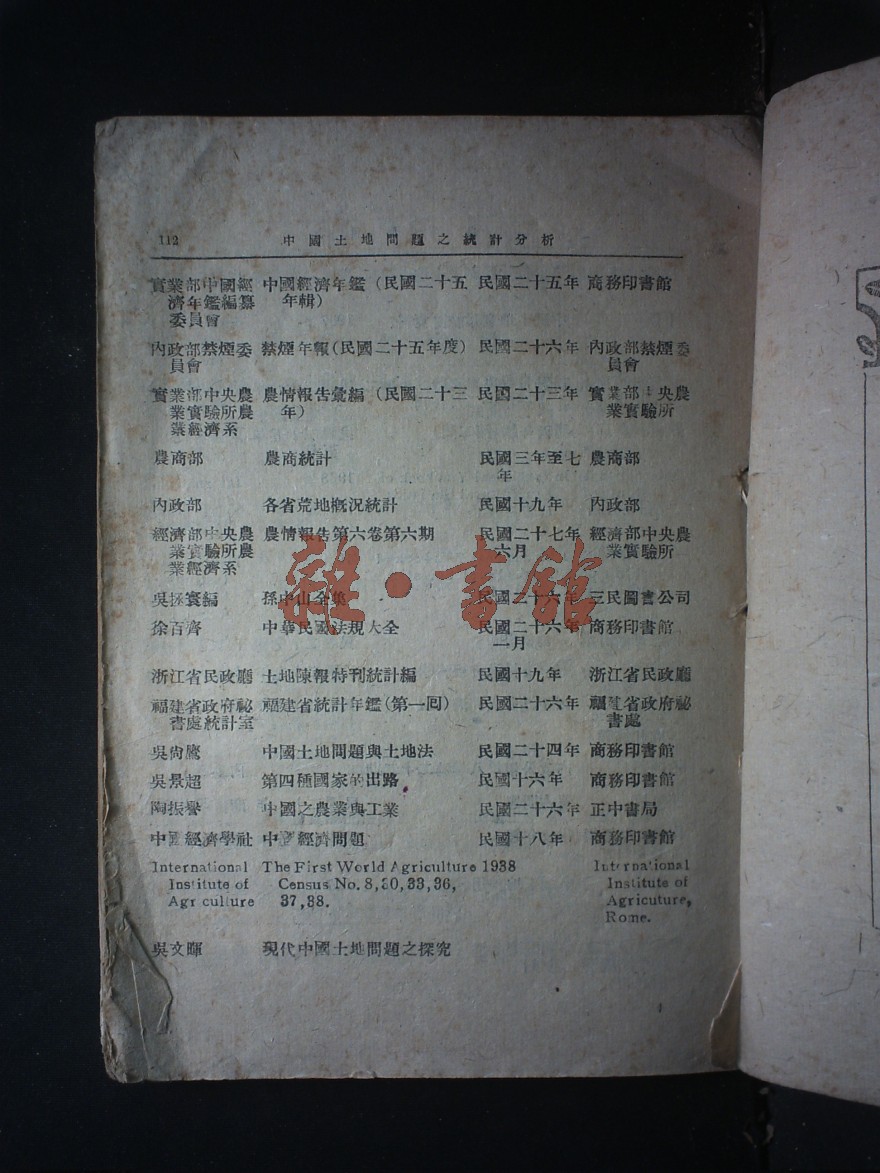 112 中國土地問題之統計分析
實業部中國經 中國經濟年鑑（民國二十五 民國二十五年 商務印書館
濟年鑑編纂 年輯）
委員會
內政部禁煙委 禁煙年報（民國二十五年度） 民國二十六年 內政部禁煙委
員會 員會
實業部中央農 農情報告彙編（民國二十三 民國二十三年 實業部中央農
業實驗所農 年） 業實驗所
業經濟系
農商部 農商統計 民國三年至七 農商部
年
內政部 各省荒地概況統計 民國十九年 內政部
經濟部中央農 農情報告第六卷第六期 民國二十七年 經濟部中央農
業實驗所農 六月 業實驗所
業經濟系
吳拯寰編 孫中山全集 民國二十六年 三民圖書公司
徐百齊 中華民國法規大全 民國二十六年 商務印書館
一月
浙江省民政廳 土地陳報特刊統計編 民國十九年 浙江省民政廳
福建省政府祕 福建省統計年鑑（第一回） 民國二十六年 福建省政府祕
書處統計室 書處
吳尙鷹 中國土地問題與土地法 民國二十四年 商務印書館
吳景超 第四種國家的出路 民國十六年 商務印書館
陶振譽 中國之農業與工業 民國二十六年 正中書局
中國經濟學社 中國經濟問題 民國十八年 商務印書館
International The First World Agriculture 1938 International
Institute of Census No. 8,30,33,36, Institute of
Agr culture 37,38. Agricuture,
Rome.
吳文暉 現代中國土地問題之探究
雜·書館